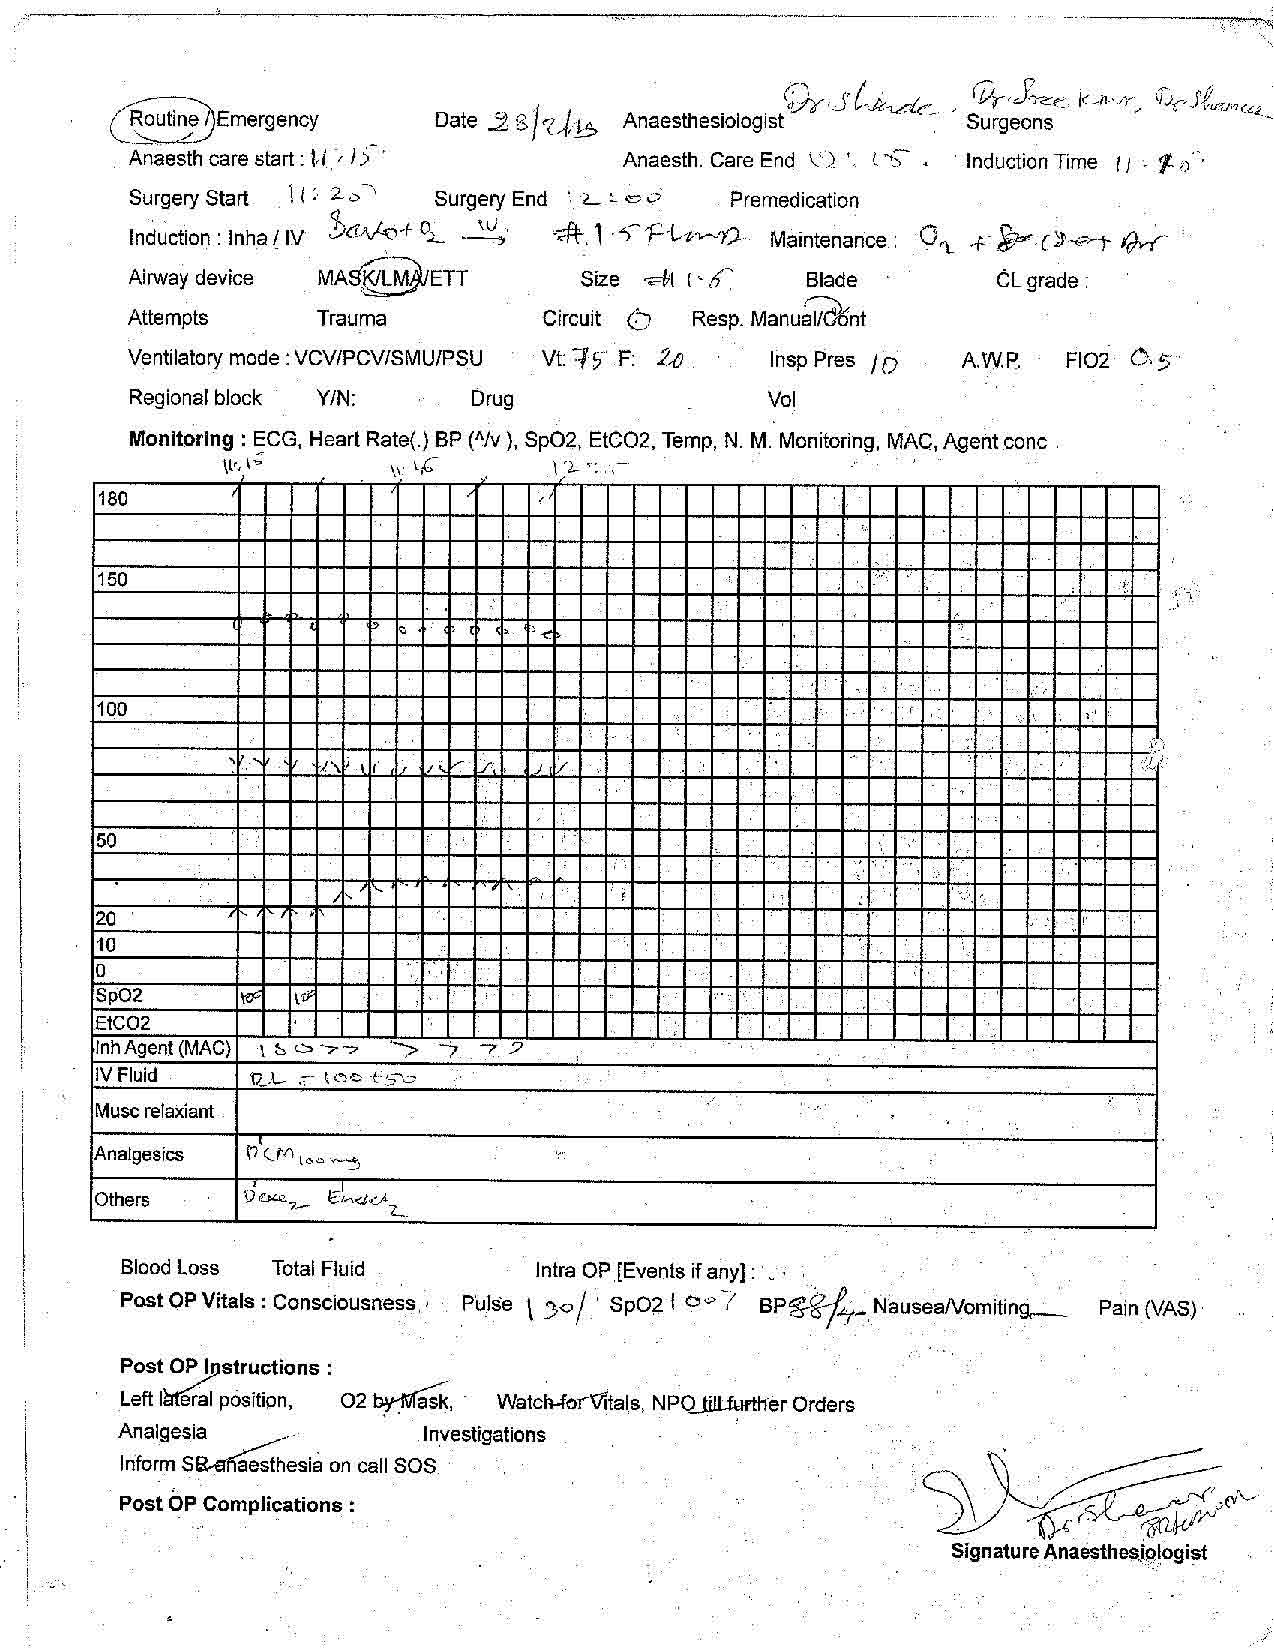 Dr. Shinde, Dr. Sreekar, Dr
Routine / Emergency Date 28/2/ Anaesthesiologist Surgeons
Anaesth care start : 11:15 Anaesth. Care End Induction Time 11:
Surgery Start 11:20 Surgery End 12:00 Premedication
Induction : Inha / IV Sevo + O2 # 1.5 Maintenance : O2 + + Air
Airway device MASK/LMA/ETT Size # 1.5 Blade CL grade :
Attempts Trauma Circuit Resp. Manual/Cont
Ventilatory mode : VCV/PCV/SMU/PSU Vt: 75 F: 20 Insp Pres 10 A.W.P. FIO2 0.5
Regional block Y/N: Drug Vol
Monitoring : ECG, Heart Rate(.) BP (^/v ), SpO2, EtCO2, Temp, N. M. Monitoring, MAC, Agent conc
11:15 11:45 12:15
180
150
100
50
20
10
0
SpO2 100 100
EtCO2
Inh Agent (MAC) > > > > > >
IV Fluid RL - 100 + 50
Musc relaxiant
Analgesics PCM 100 mg
Others Dexa
Blood Loss Total Fluid Intra OP [Events if any] :
Post OP Vitals : Consciousness Pulse 130/ SpO2 100% BP 88/4 Nausea/Vomiting Pain (VAS)
Post OP Instructions :
Left lateral position, O2 by Mask, Watch for Vitals, NPO till further Orders
Analgesia Investigations
Inform SR anaesthesia on call SOS
Post OP Complications :
Signature Anaesthesiologist